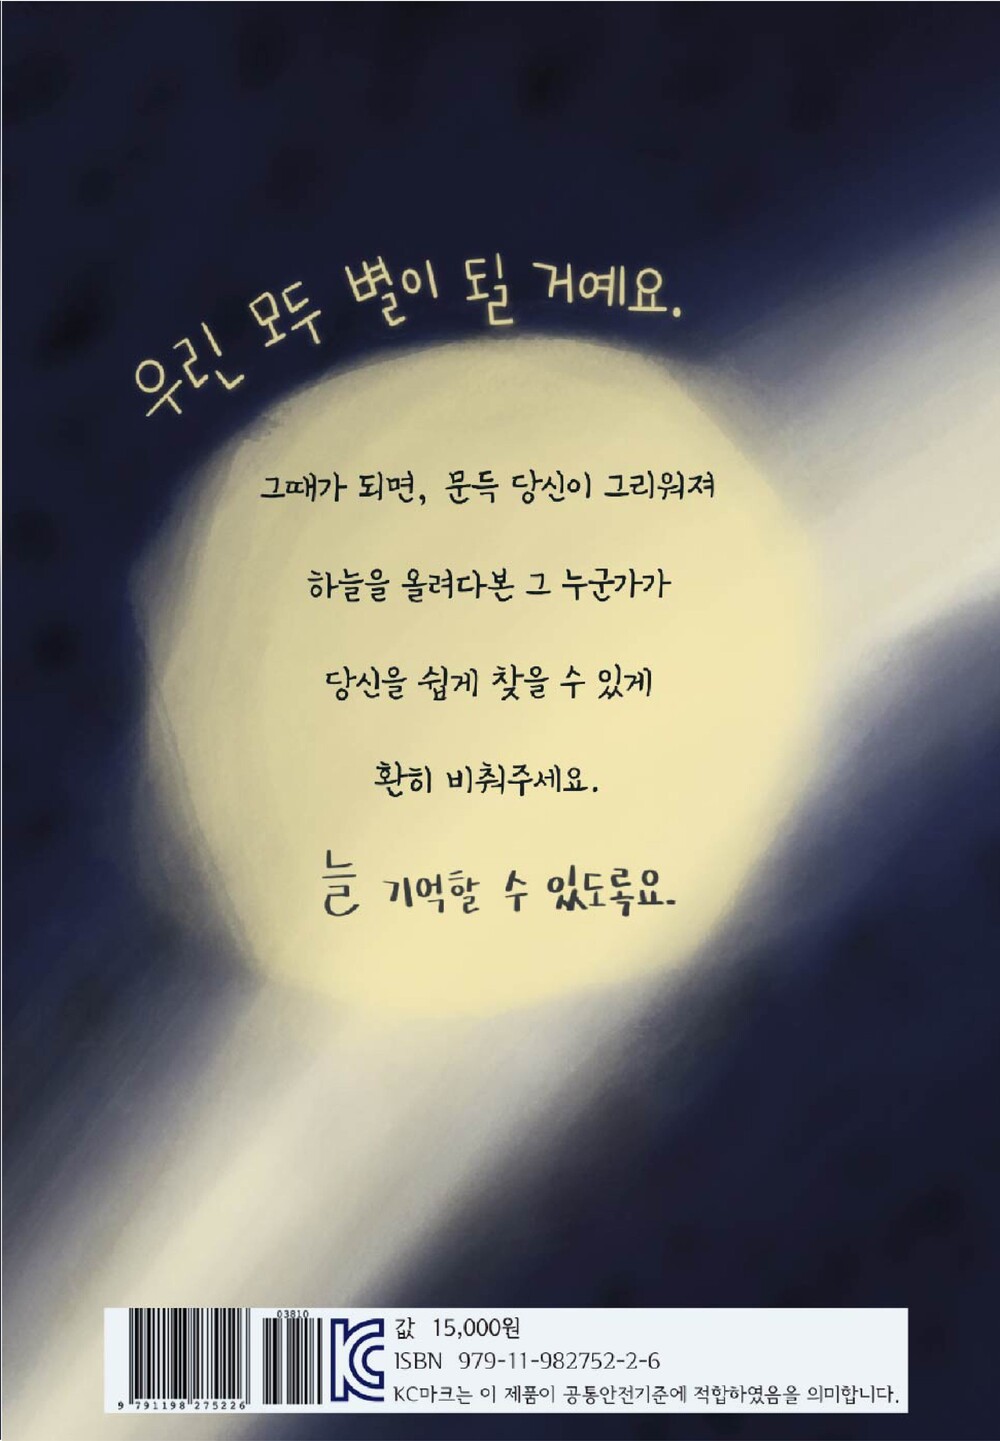 우린 모두 별이 될 거예요.
그때가 되면, 문득 당신이 그리워져
하늘을 올려다본 그 누군가가
당신을 쉽게 찾을 수 있게
환히 비춰주세요.
늘 기억할 수 있도록요.
03810
KC
값 15,000원
ISBN 979-11-982752-2-6
KC마크는 이 제품이 공통안전기준에 적합하였음을 의미합니다.
9 791198 275226